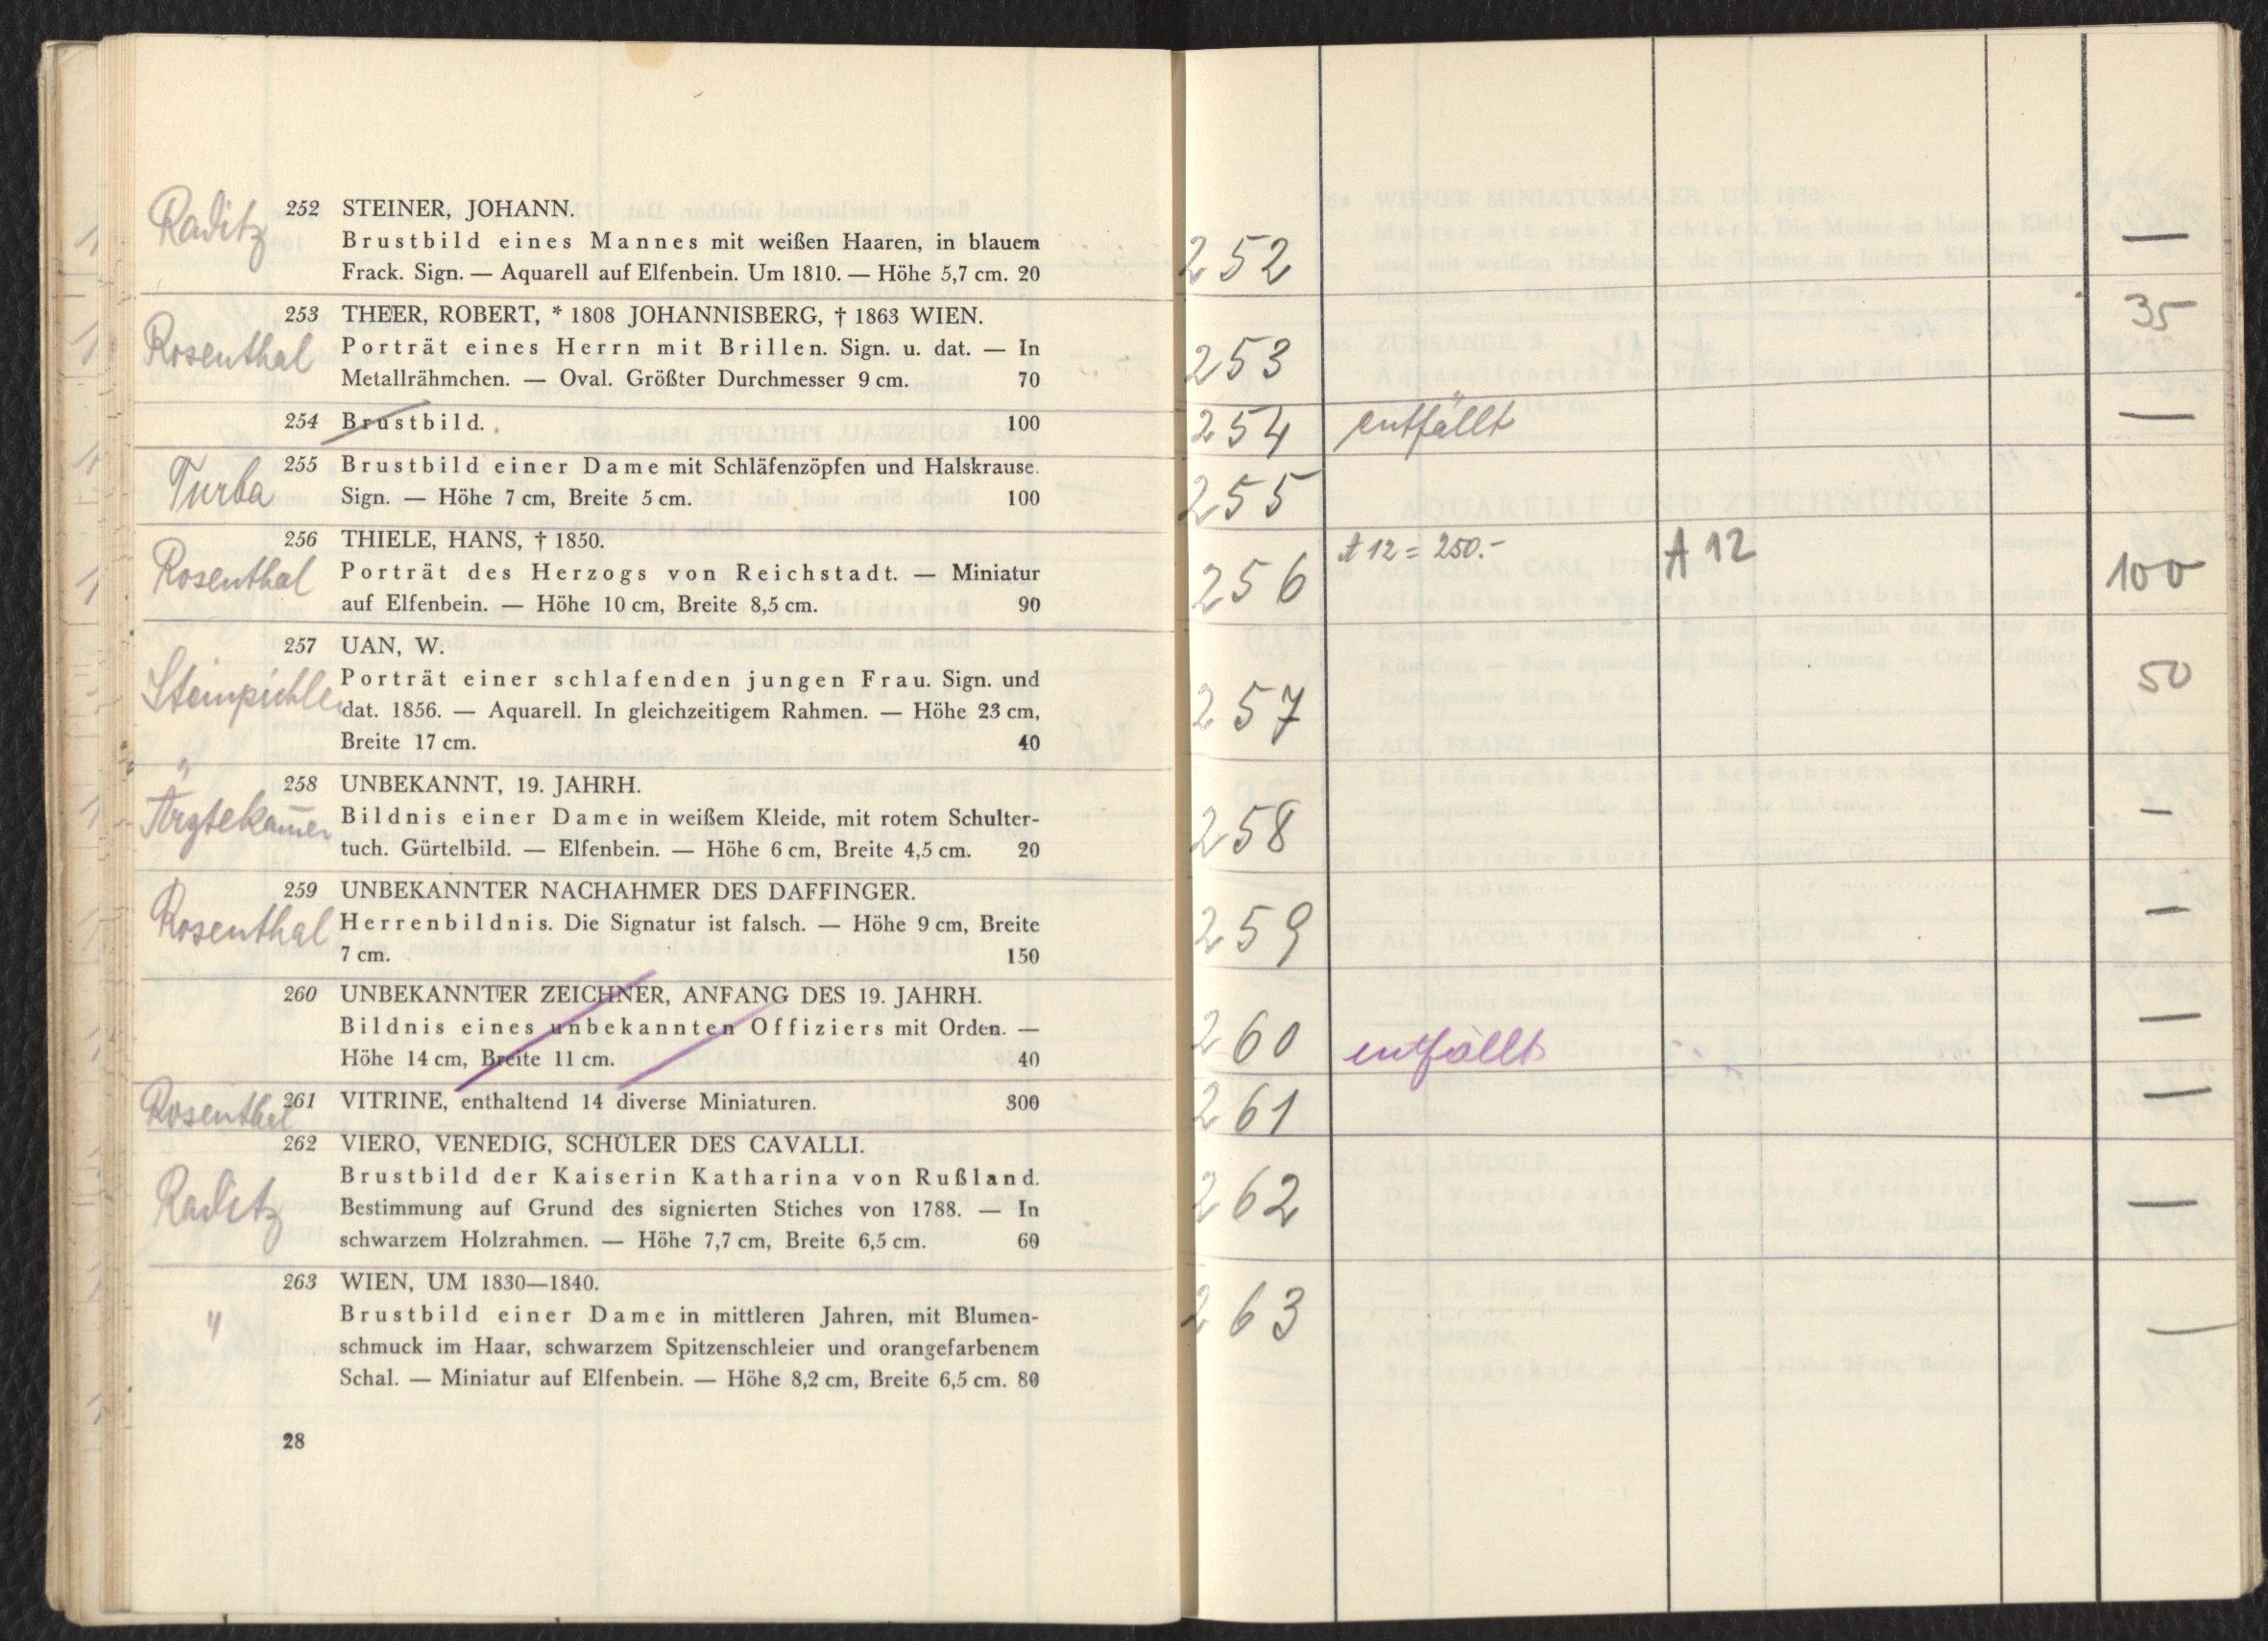 Raditz
252 STEINER, JOHANN.
Brustbild eines Mannes mit weißen Haaren, in blauem
Frack. Sign. — Aquarell auf Elfenbein. Um 1810. — Höhe 5,7 cm. 20
Rosenthal
253 THEER, ROBERT, * 1808 JOHANNISBERG, † 1863 WIEN.
Porträt eines Herrn mit Brillen. Sign. u. dat. — In
Metallrähmchen. — Oval. Größter Durchmesser 9 cm. 70
254 Brustbild. 100
Turba
255 Brustbild einer Dame mit Schläfenzöpfen und Halskrause.
Sign. — Höhe 7 cm, Breite 5 cm. 100
Rosenthal
256 THIELE, HANS, † 1850.
Porträt des Herzogs von Reichstadt. — Miniatur
auf Elfenbein. — Höhe 10 cm, Breite 8,5 cm. 90
257 UAN, W.
Porträt einer schlafenden jungen Frau. Sign. und
dat. 1856. — Aquarell. In gleichzeitigem Rahmen. — Höhe 23 cm,
Breite 17 cm. 40
Ärztekam̄er
258 UNBEKANNT, 19. JAHRH.
Bildnis einer Dame in weißem Kleide, mit rotem Schulter-
tuch. Gürtelbild. — Elfenbein. — Höhe 6 cm, Breite 4,5 cm. 20
Rosenthal
259 UNBEKANNTER NACHAHMER DES DAFFINGER.
Herrenbildnis. Die Signatur ist falsch. — Höhe 9 cm, Breite
7 cm. 150
260 UNBEKANNTER ZEICHNER, ANFANG DES 19. JAHRH.
Bildnis eines unbekannten Offiziers mit Orden. —
Höhe 14 cm, Breite 11 cm. 40
Rosenthal
261 VITRINE, enthaltend 14 diverse Miniaturen. 300
Raditz
262 VIERO, VENEDIG, SCHÜLER DES CAVALLI.
Brustbild der Kaiserin Katharina von Rußland.
Bestimmung auf Grund des signierten Stiches von 1788. — In
schwarzem Holzrahmen. — Höhe 7,7 cm, Breite 6,5 cm. 60
"
263 WIEN, UM 1830—1840.
Brustbild einer Dame in mittleren Jahren, mit Blumen-
schmuck im Haar, schwarzem Spitzenschleier und orangefarbenem
Schal. — Miniatur auf Elfenbein. — Höhe 8,2 cm, Breite 6,5 cm. 80
28
252 —
253 35
254 entfällt —
255
256 A 12 = 250.- A 12 100
257 50
258 —
259 —
260 entfällt —
261 —
262 —
263 —